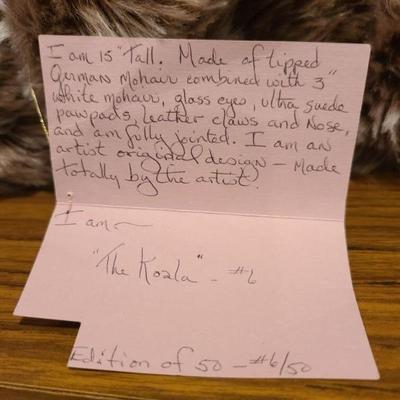 I am 15" tall. Made of tipped
German Mohair combined with 3"
white mohair, glass eyes, ultra suede
pawpads, leather claws and Nose,
and am fully jointed. I am an
artist original design - Made
totally by the artist.
I am ~
"The Koala" - #6
Edition of 50 - #6/50